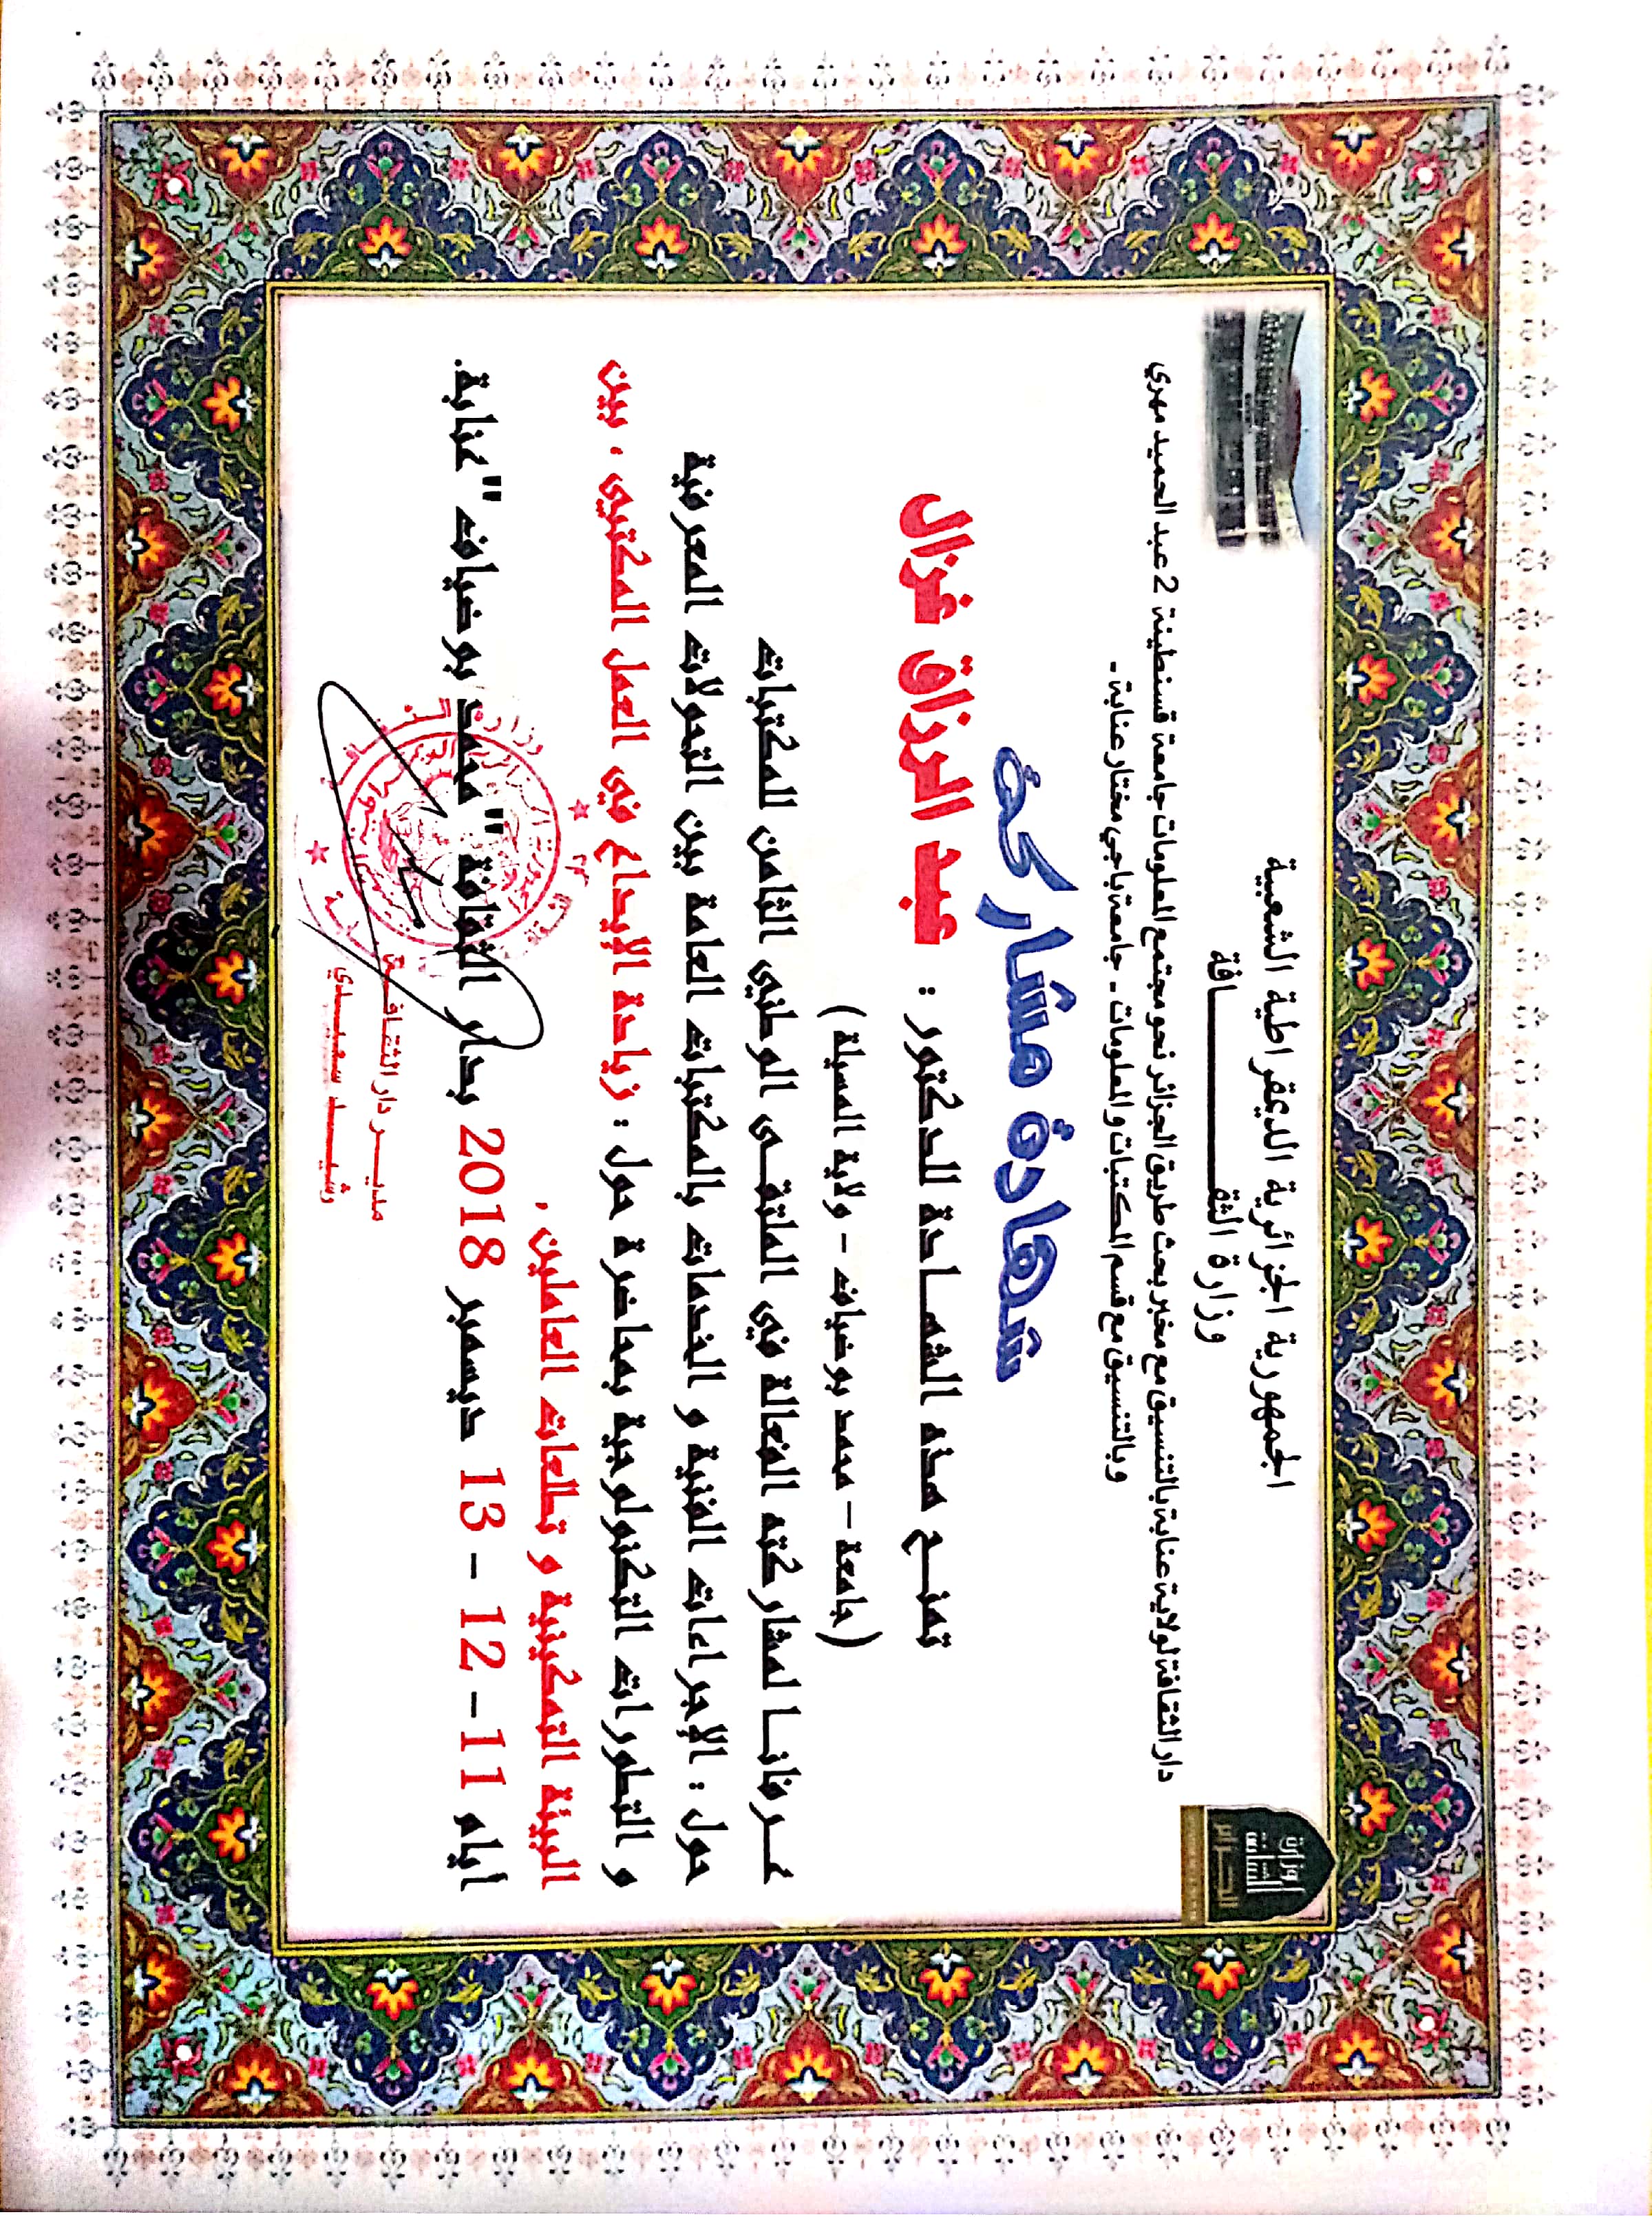 الجمهورية الجزائرية الديمقراطية الشعبية
وزارة الثقـــــــــافة
وزارة الثقافة
دار الثقافة لولاية عنابة بالتنسيق مع مخبر بحث طريق الجزائر نحو مجتمع المعلومات جامعة قسنطينة 2 عبد الحميد مهري
وبالتنسيق مع قسم المكتبات و المعلومات - جامعة باجي مختار عنابة -
شهادة مشاركة
تمنـــح هذه الشهـــادة للدكتور : عبد الرزاق غزال
(جامعة – محمد بوضياف – ولاية المسيلة )
عــرفانــا لمشاركته الفعالة في الملتقــى الوطني الثامن للمكتبات
حول : الإجراءات الفنية و الخدمات بالمكتبات العامة بين التحولات المعرفية
و التطورات التكنولوجية بمحاضرة حول : زيادة الإبداع في العمل المكتبي ، بين
البيئة التمكينية و تطلعات العاملين .
أيام 11 – 12 – 13 ديسمبر 2018 بدار الثقافة "محمد بوضياف "عنابة.
مديـــر دار الثقافـــة
رشيـــد سعيـــدي